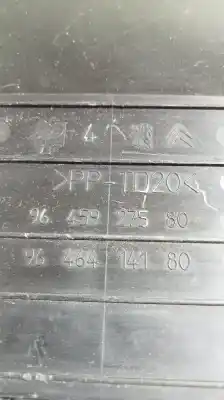 4
>PP-TD20<
96 459 275 80
96 464 141 80